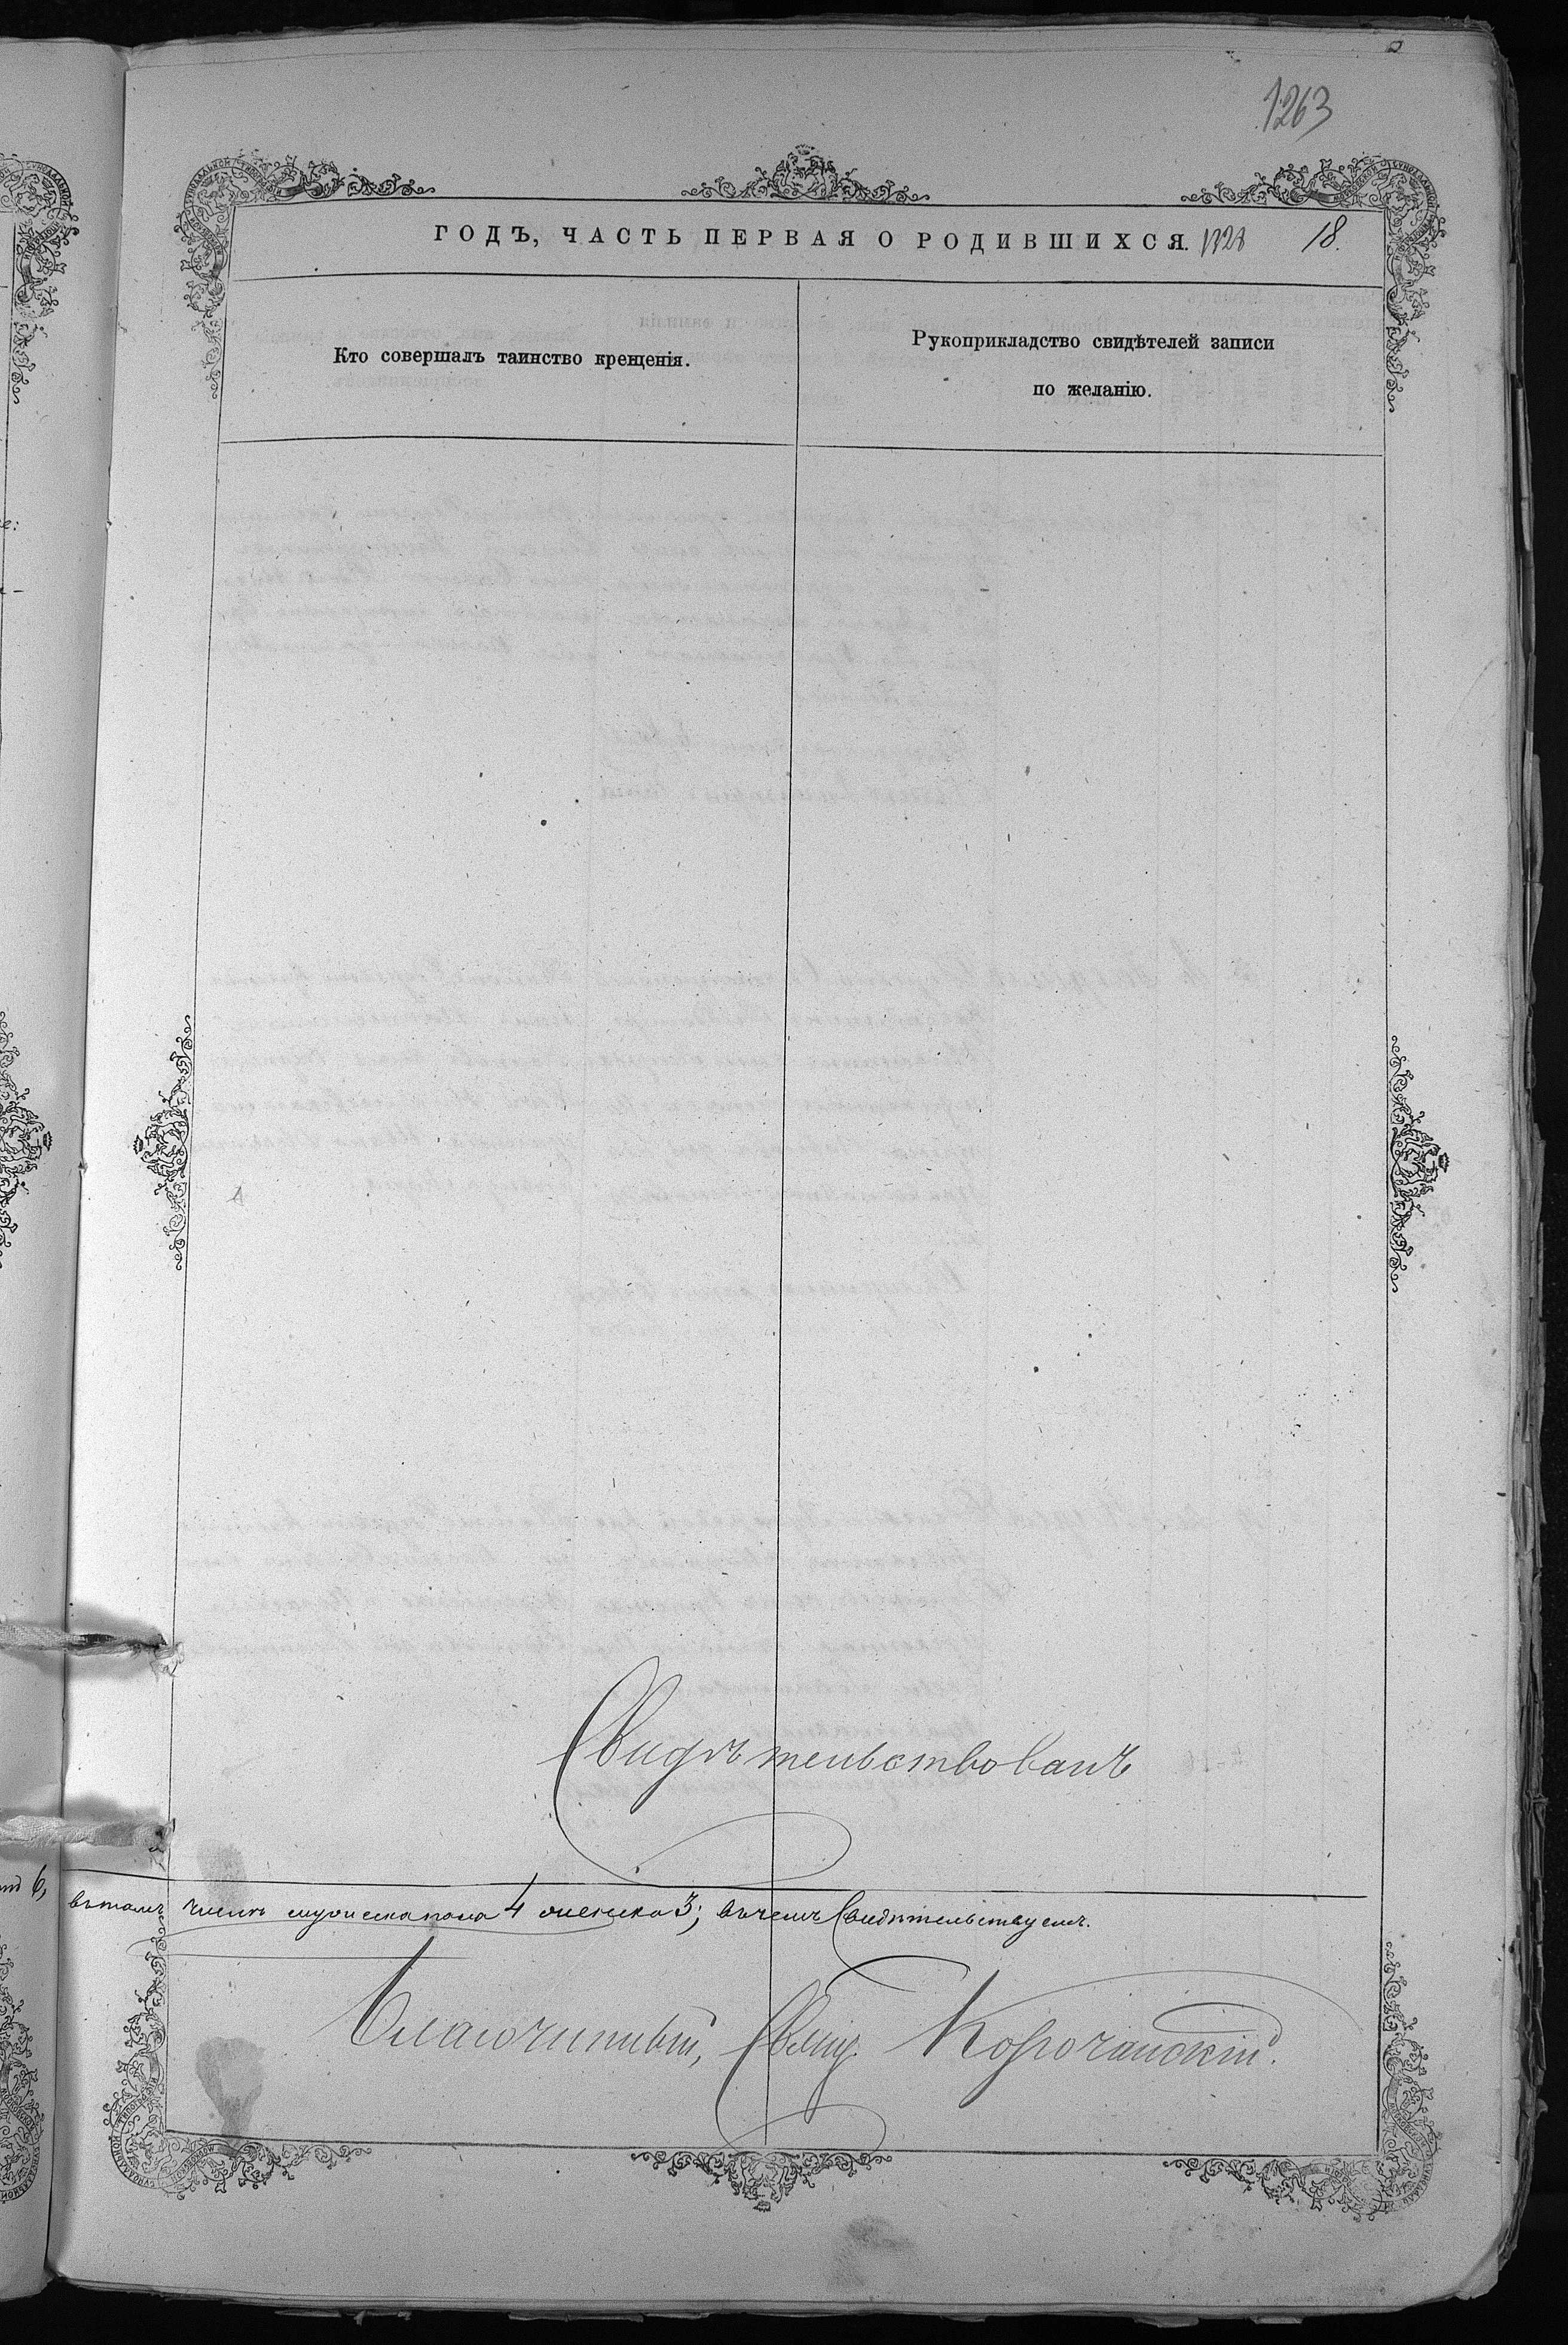 1263
ГОДЪ, ЧАСТЬ ПЕРВАЯ О РОДИВШИХСЯ. 18.
Кто совершалъ таинство крещенія.
Рукоприкладство свидѣтелей записи
по желанію.
Свидѣтельствовалъ
въ томъ числѣ мужескаго пола 4 женска 3; въ чемъ Свидѣтельствуемъ.
Благочинный, Свящ. Корочанскій.